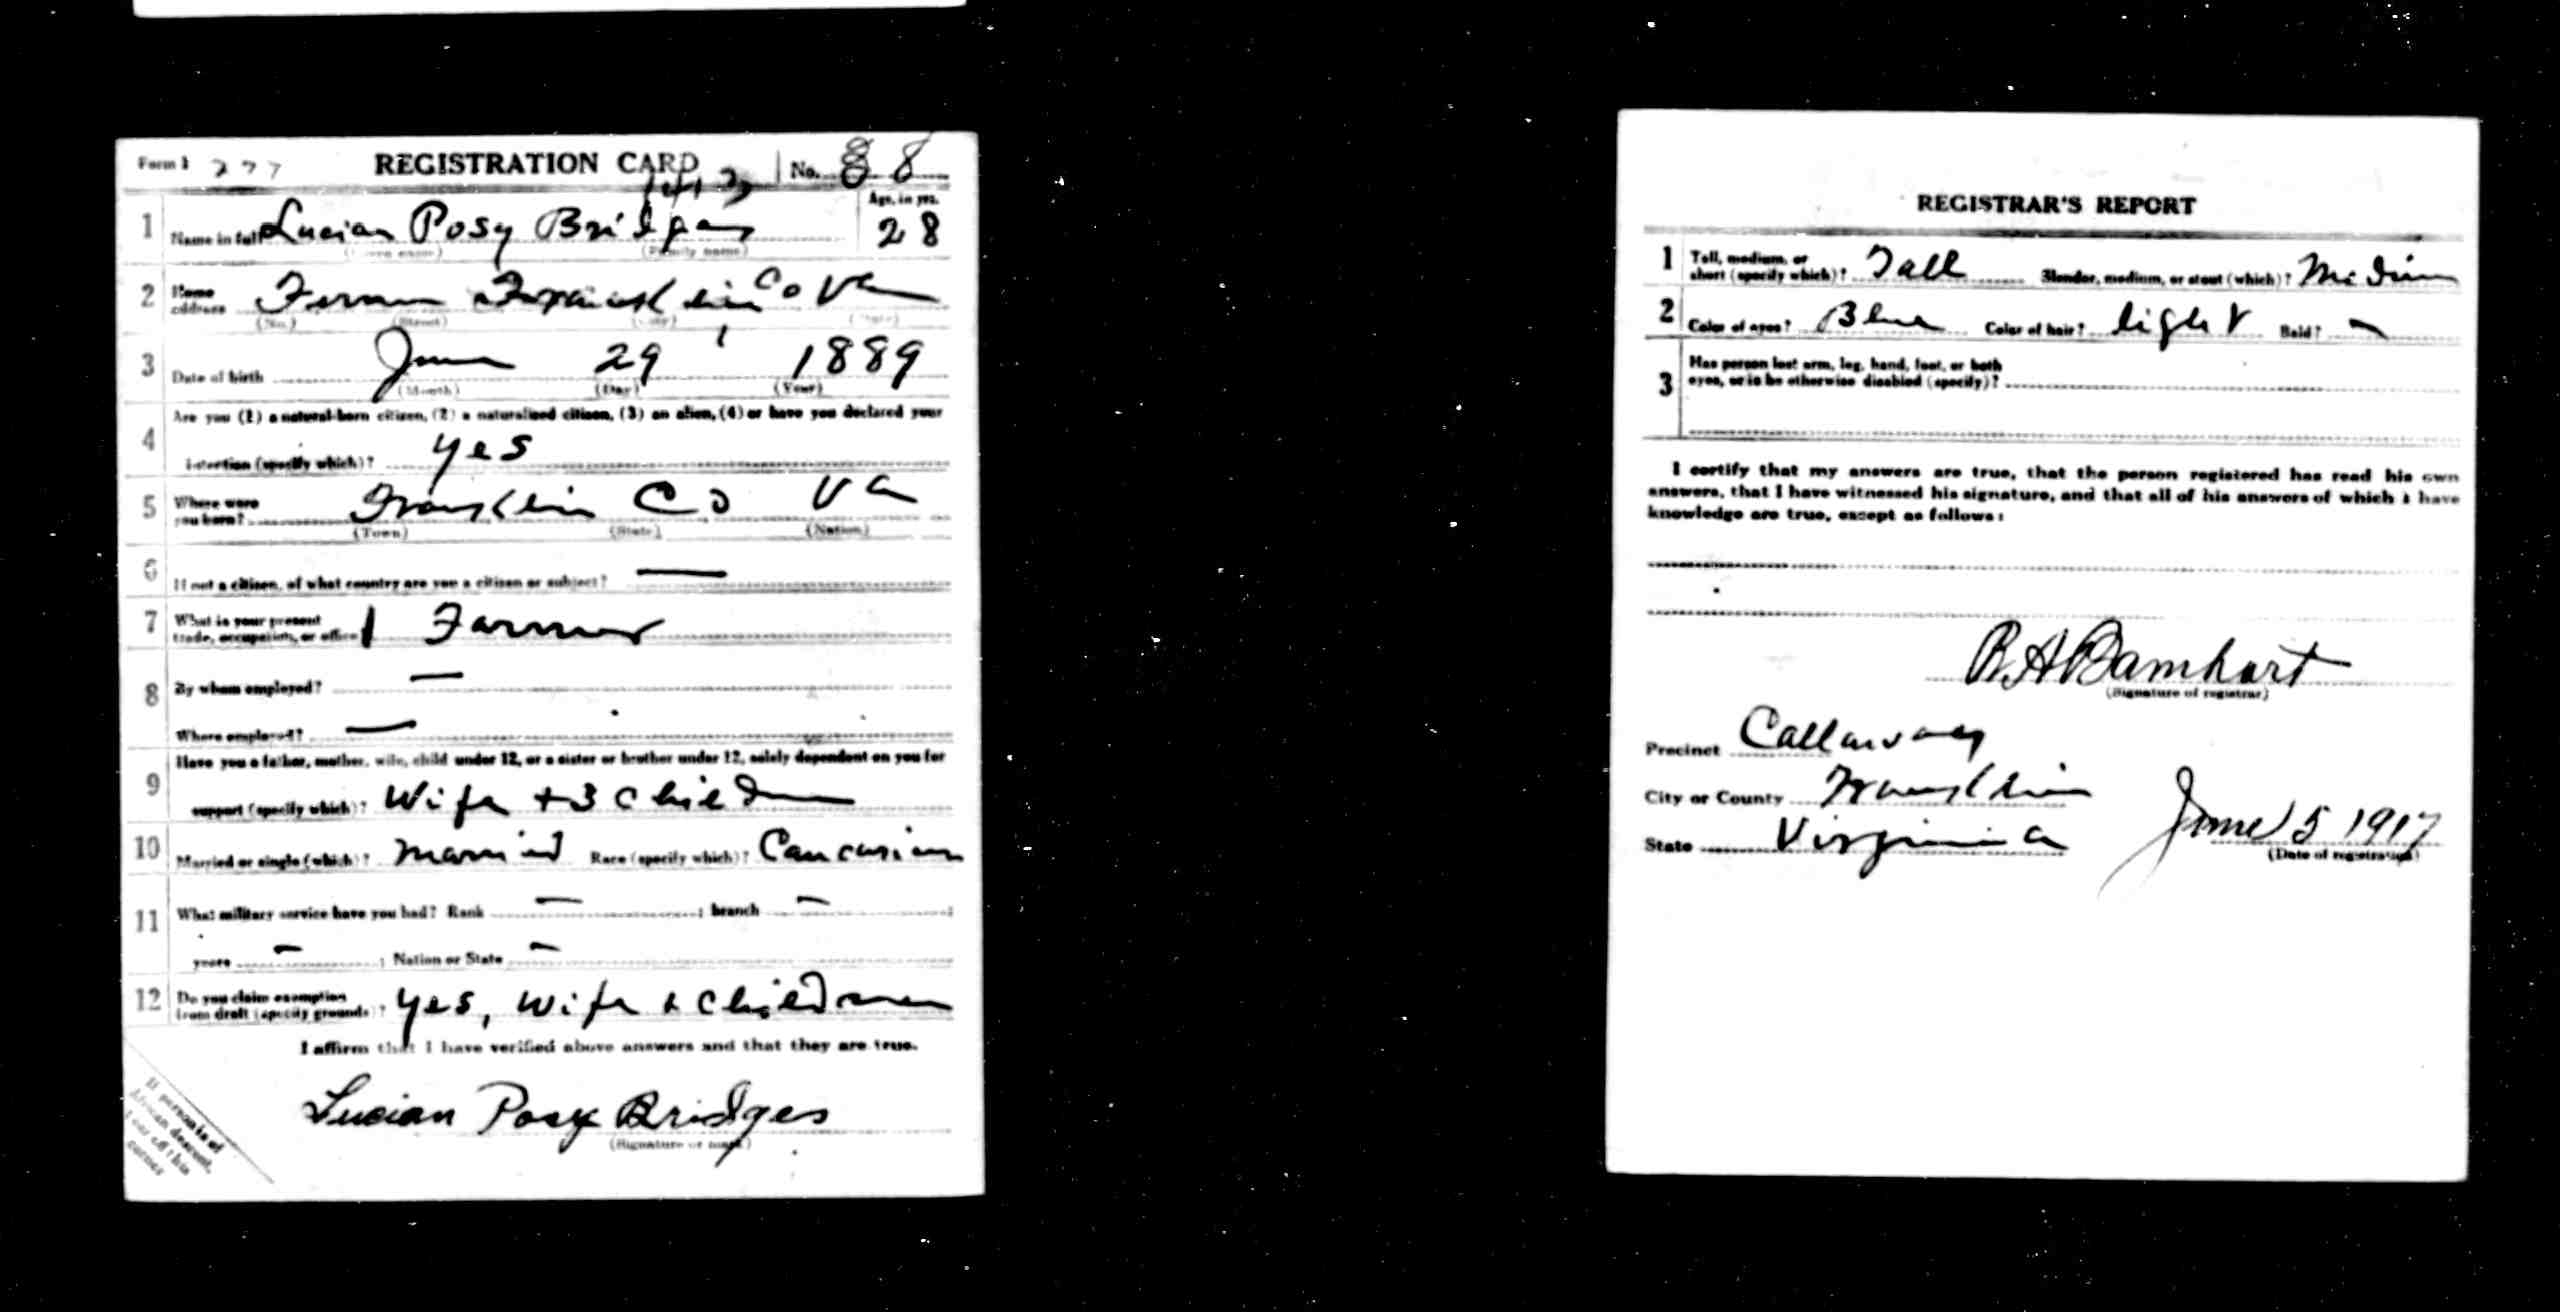 Form 1 277 REGISTRATION CARD No. 88
Age, in yrs.
1 Name in full Lucian Posy Bridges 28
(Given name) (Family name)
2 Home address Ferrum Franklin Co Va
(No.) (Street) (City) (State)
3 Date of birth June 29 1889
(Month) (Day) (Year)
Are you (1) a natural-born citizen, (2) a naturalized citizen, (3) an alien, (4) or have you declared your
4 intention (specify which)? yes
5 Where were you born? Franklin Co Va
(Town) (State) (Nation)
6 If not a citizen, of what country are you a citizen or subject? —
7 What is your present trade, occupation, or office Farmer
8 By whom employed? —
Where employed? —
Have you a father, mother, wife, child under 12, or a sister or brother under 12, solely dependent on you for
9 support (specify which)? Wife + 3 Children
10 Married or single (which)? Married Race (specify which)? Caucasian
11 What military service have you had? Rank — ; branch — ;
years — ; Nation or State —
12 Do you claim exemption from draft (specify grounds)? Yes, Wife & Children
I affirm that I have verified above answers and that they are true.
Lucian Posy Bridges
(Signature or mark)
If person is of
African descent,
tear off this
corner
REGISTRAR'S REPORT
1 Tall, medium, or short (specify which)? Tall Slender, medium, or stout (which)? Medium
2 Color of eyes? Blue Color of hair? light Bald? —
Has person lost arm, leg, hand, foot, or both
3 eyes, or is he otherwise disabled (specify)?
I certify that my answers are true, that the person registered has read his own
answers, that I have witnessed his signature, and that all of his answers of which I have
knowledge are true, except as follows:
R A Barnhart
(Signature of registrar)
Precinct Callaway
City or County Franklin
State Virginia June 5 1917
(Date of registration)